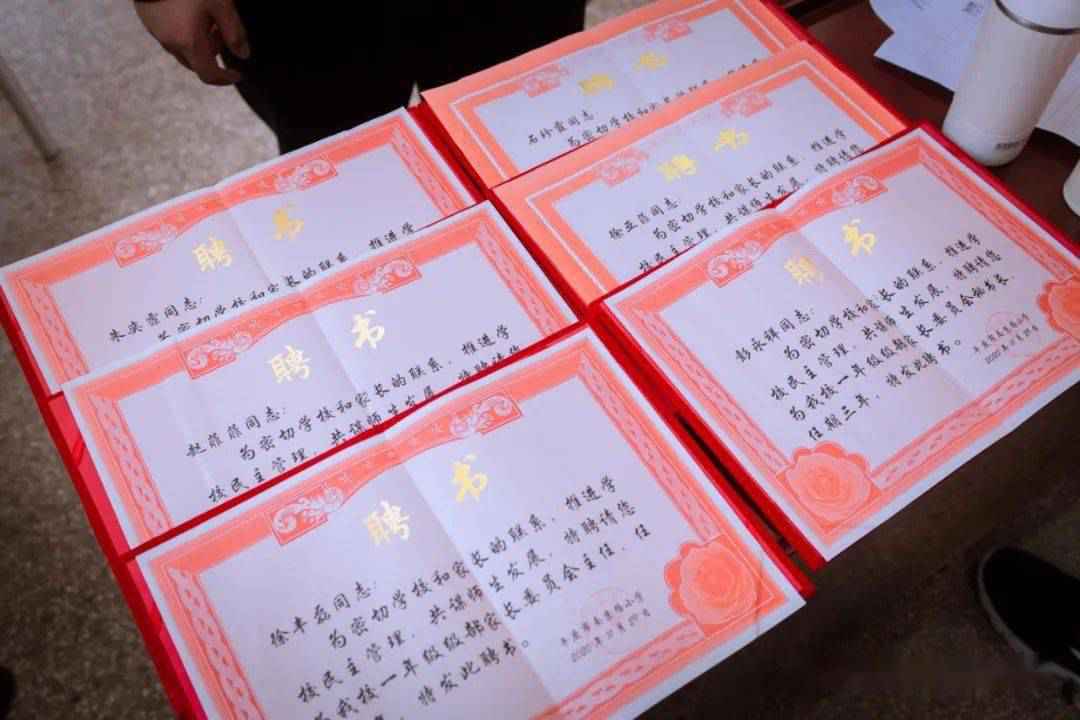 聘书
石珍霞同志:
为密切学校和家长
聘书
徐亚蓓同志:
为密切学校和家长的联系,推进学
校民主管理,共谋师生发展,特聘请您
聘书
彭永祥同志:
为密切学校和家长的联系,推进学
校民主管理,共谋师生发展,特聘请您
为我校一年级级部家长委员会秘书长,
任期三年,
特发此聘书。
聘书
同志:
为密切学校和家长的联系,推进学
聘书
赵蓓蓓同志:
为密切学校和家长的联系,推进学
校民主管理,共谋师生发展,特聘请您
聘书
徐丰磊同志:
为密切学校和家长的联系,推进学
校民主管理,共谋师生发展,特聘请您
为我校一年级级部家长委员会主任,任
特发此聘书。